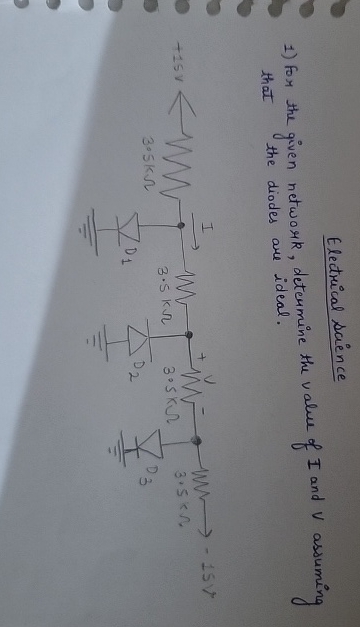 Electrical Science
1) For the given network, determine the value of I and V assuming
that the diodes are ideal.
I
+ V -
+15V
3.5KΩ
3.5KΩ
3.5KΩ
3.5KΩ
-15V
D1
D2
D3